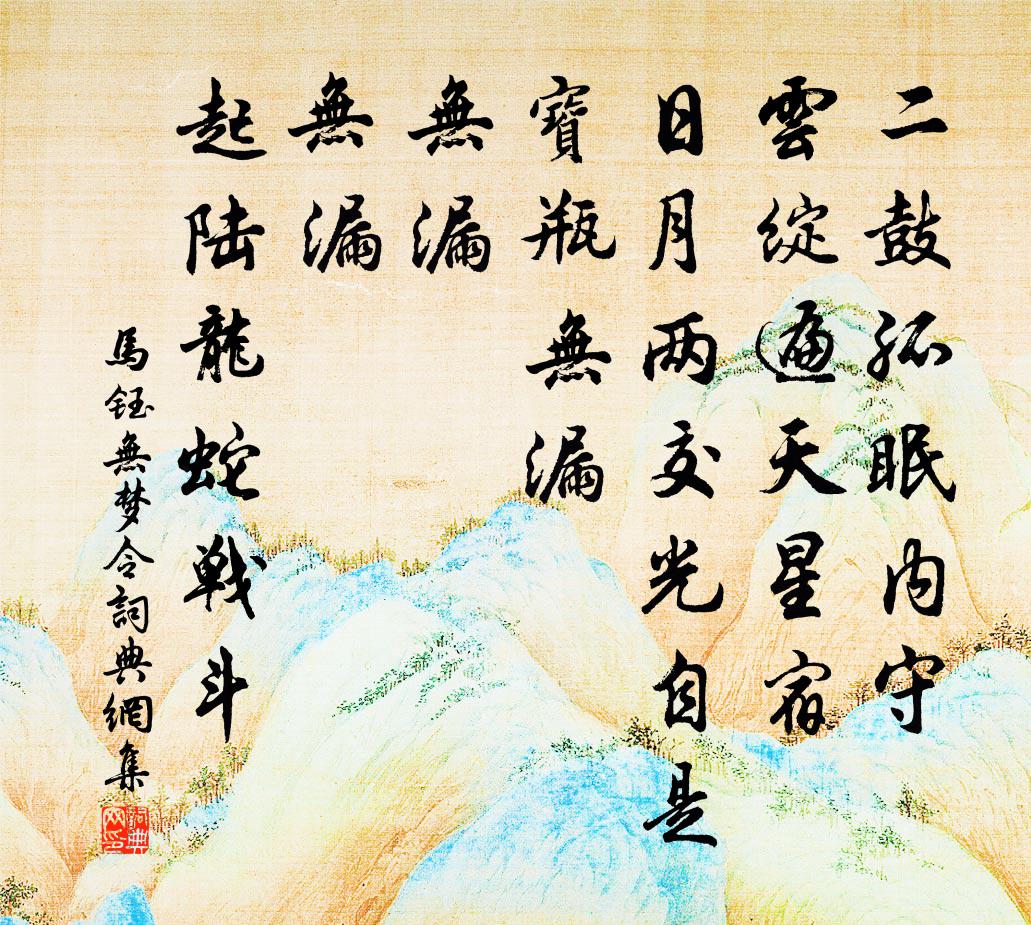 二鼓孤眠内守
雲綻遍天星宿
日月两交光自是
寶瓶無漏
無漏
無漏
起陆龍蛇戦斗
馬鈺無梦令詞典網集
詞典
网印